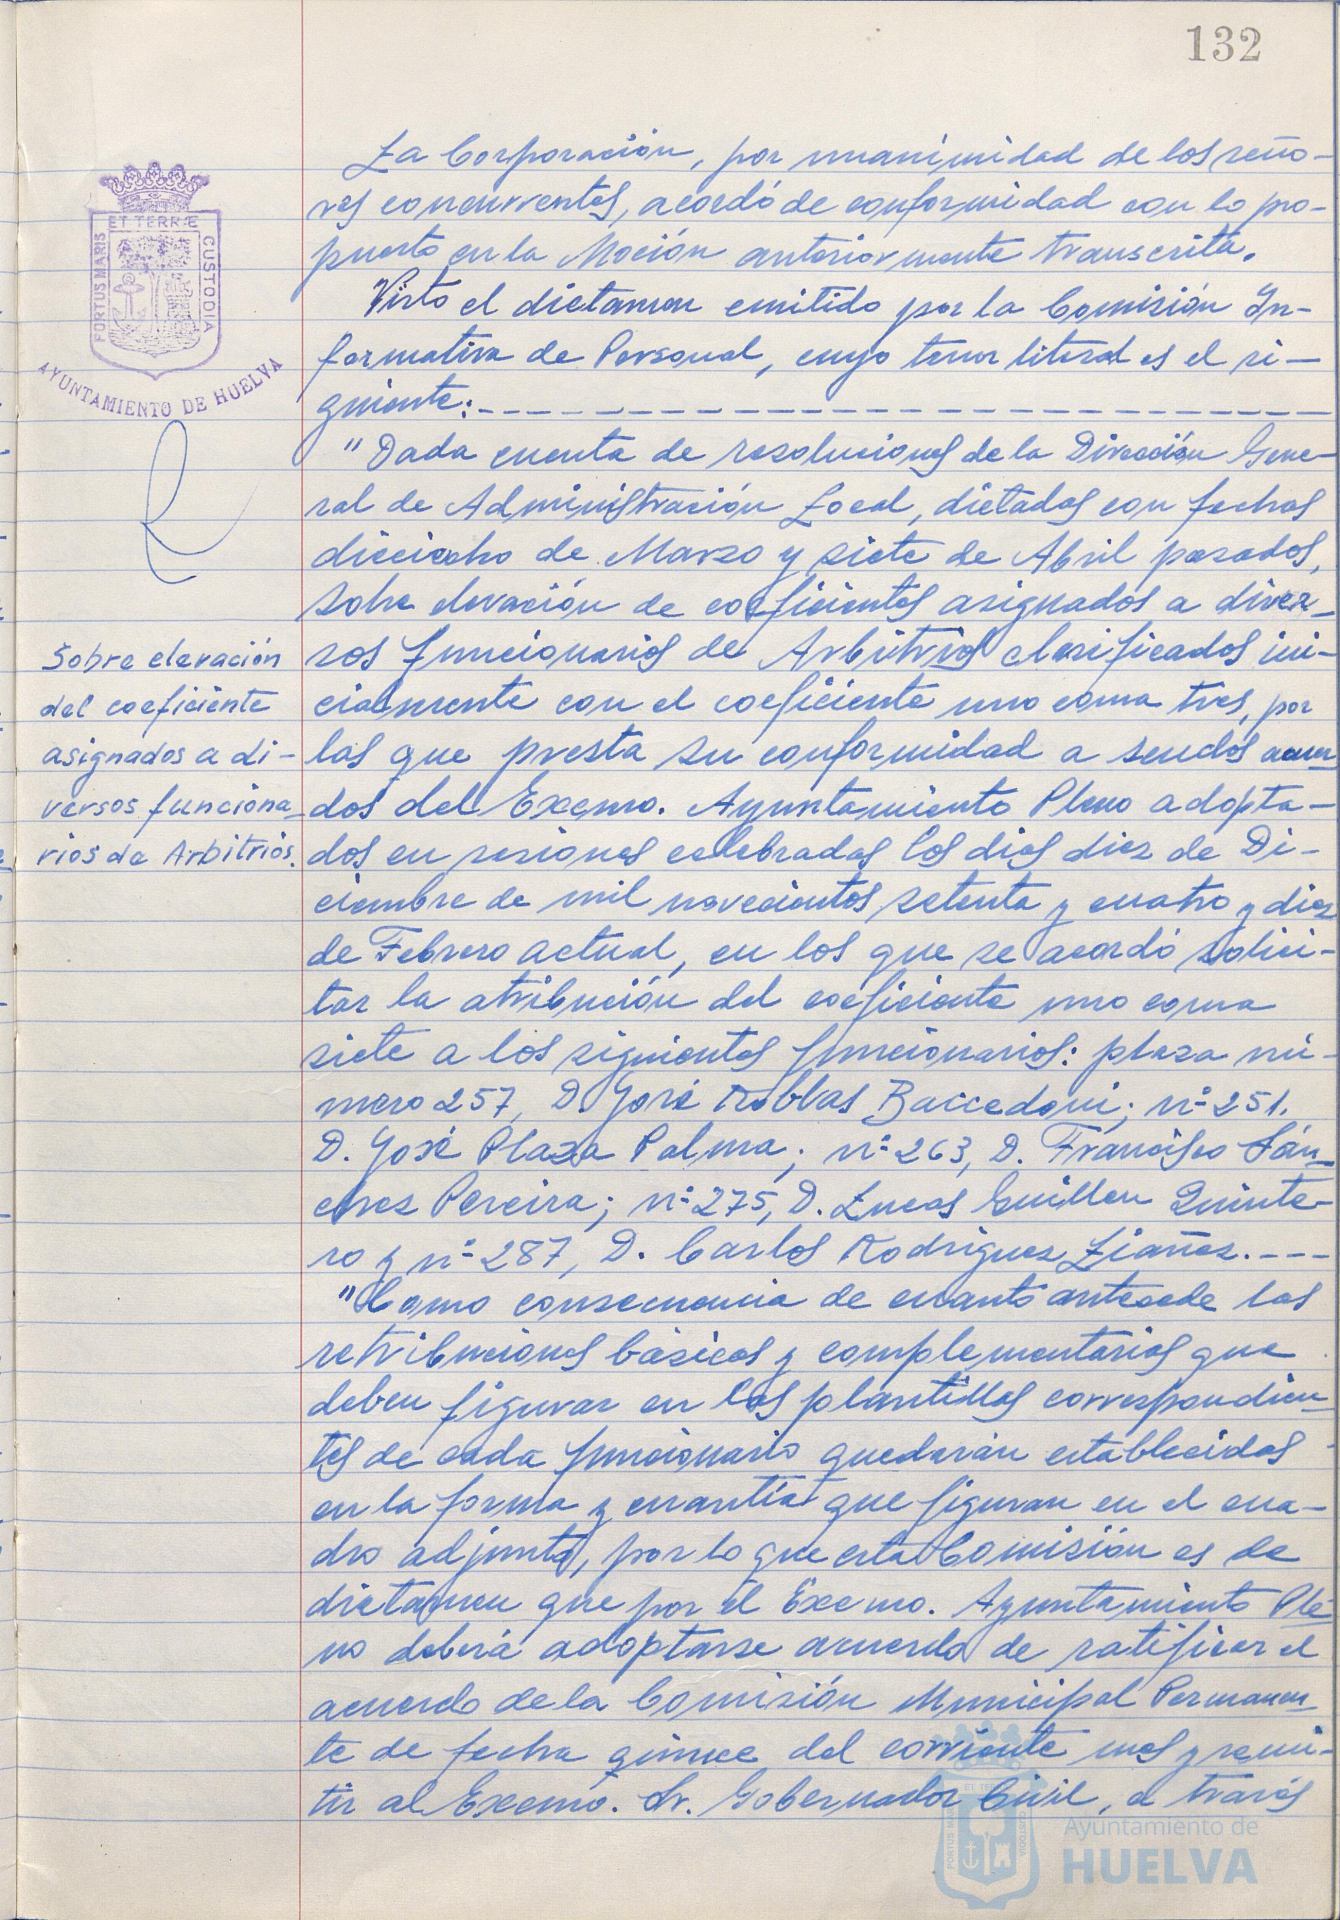 132
La Corporación, por unanimidad de los seño-
res concurrentes, acordó de conformidad con lo pro-
puesto en la Moción anteriormente transcrita.
Visto el dictamen emitido por la Comisión In-
formativa de Personal, cuyo tenor literal es el si-
guiente:
"Dada cuenta de resoluciones de la Dirección Gene-
ral de Administración Local, dictadas con fechas
dieciocho de Marzo y siete de Abril pasados,
sobre elevación de coeficientes asignados a diver-
sos funcionarios de Arbitrios clasificados ini-
cialmente con el coeficiente uno coma tres, por
las que presta su conformidad a sendos acuer-
dos del Excmo. Ayuntamiento Pleno adopta-
dos en sesiones celebradas los dias diez de Di-
ciembre de mil novecientos setenta y cuatro y diez
de Febrero actual, en los que se acordó solici-
tar la atribución del coeficiente uno coma
siete a los siguientes funcionarios: plaza nú-
mero 257, D. José Robles Baccedoni; nº 251.
D. José Plaza Palma; nº 263, D. Francisco Sán-
chez Pereira; nº 275, D. Lucas Guillen Quinte-
ro y nº 287, D. Carlos Rodriguez Liañez.---
"Como consecuencia de cuanto antecede las
retribuciones básicas y complementarias que
deben figurar en las plantillas correspondien-
tes de cada funcionario quedarán establecidas
en la forma y cuantía que figuran en el cua-
dro adjunto, por lo que esta Comisión es de
dictamen que por el Excmo. Ayuntamiento Ple-
no deberá adoptarse acuerdo de ratificar el
acuerdo de la Comisión Municipal Permanen-
te de fecha quince del corriente mes y remi-
tir al Excmo. Sr. Gobernador Civil, a través
PORTUS MARIS ET TERRÆ CUSTODIA
AYUNTAMIENTO DE HUELVA
Sobre elevación
del coeficiente
asignados a di-
versos funciona-
rios de Arbitrios.
PORTUS MARIS ET TERRÆ CUSTODIA
Ayuntamiento de
HUELVA